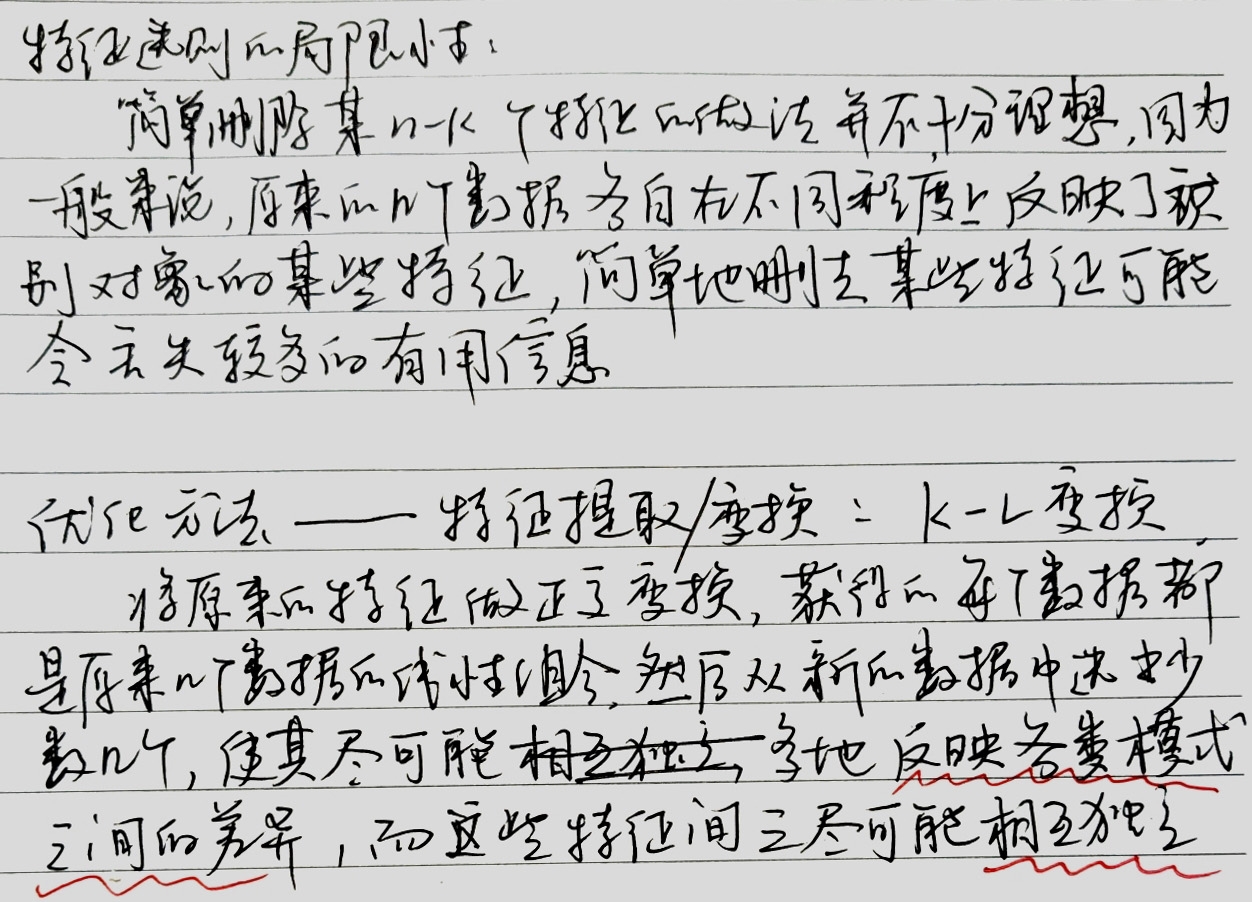 特征选则的局限性：
简单删除某n-k个特征的做法并不十分理想，因为
一般来说，原来的n个数据各自在不同程度上反映了识
别对象的某些特征，简单地删去某些特征可能
会丢失较多的有用信息
优化方法——特征提取/变换：K-L变换
将原来的特征做正交变换，获得的每个数据都
是原来n个数据的线性组合，然后从新的数据中选出少
数n个，使其尽可能相互独立，多地反映各类模式
之间的差异，而这些特征间又尽可能相互独立